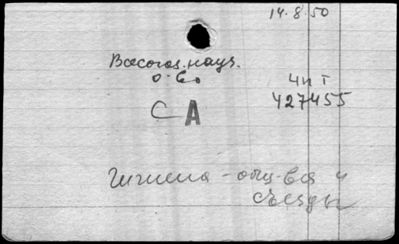 14.8.50
Всесоюз. науч.
о-во
4и Т
427455
С А
Гигиена - общ-ва и
съезды